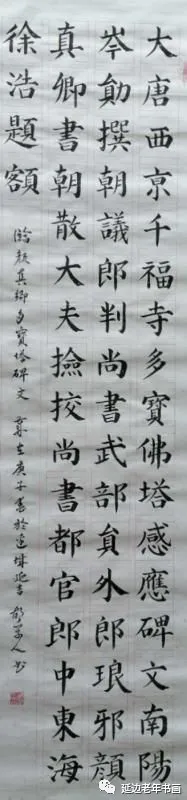 大唐西京千福寺多寶佛塔感應碑文南陽
岑勛撰朝議郎判尚書武部員外郎琅邪顏
真卿書朝散大夫撿挍尚書都官郎中東海
徐浩題額
臨顏真卿多寶塔碑文 歲在庚子書於邊城延吉
延边老年书画